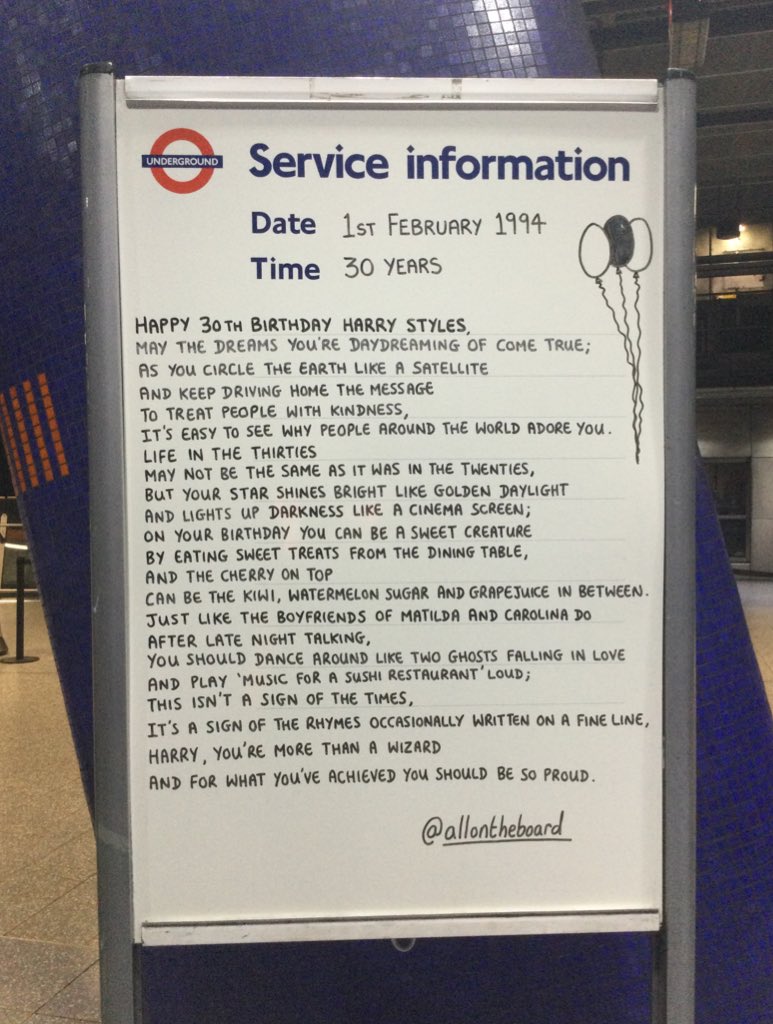 UNDERGROUND
Service information
Date 1ST FEBRUARY 1994
Time 30 YEARS
HAPPY 30TH BIRTHDAY HARRY STYLES,
MAY THE DREAMS YOU'RE DAYDREAMING OF COME TRUE;
AS YOU CIRCLE THE EARTH LIKE A SATELLITE
AND KEEP DRIVING HOME THE MESSAGE
TO TREAT PEOPLE WITH KINDNESS,
IT'S EASY TO SEE WHY PEOPLE AROUND THE WORLD ADORE YOU.
LIFE IN THE THIRTIES
MAY NOT BE THE SAME AS IT WAS IN THE TWENTIES,
BUT YOUR STAR SHINES BRIGHT LIKE GOLDEN DAYLIGHT
AND LIGHTS UP DARKNESS LIKE A CINEMA SCREEN;
ON YOUR BIRTHDAY YOU CAN BE A SWEET CREATURE
BY EATING SWEET TREATS FROM THE DINING TABLE,
AND THE CHERRY ON TOP
CAN BE THE KIWI, WATERMELON SUGAR AND GRAPEJUICE IN BETWEEN.
JUST LIKE THE BOYFRIENDS OF MATILDA AND CAROLINA DO
AFTER LATE NIGHT TALKING,
YOU SHOULD DANCE AROUND LIKE TWO GHOSTS FALLING IN LOVE
AND PLAY 'MUSIC FOR A SUSHI RESTAURANT' LOUD;
THIS ISN'T A SIGN OF THE TIMES,
IT'S A SIGN OF THE RHYMES OCCASIONALLY WRITTEN ON A FINE LINE,
HARRY, YOU'RE MORE THAN A WIZARD
AND FOR WHAT YOU'VE ACHIEVED YOU SHOULD BE SO PROUD.
@allontheboard